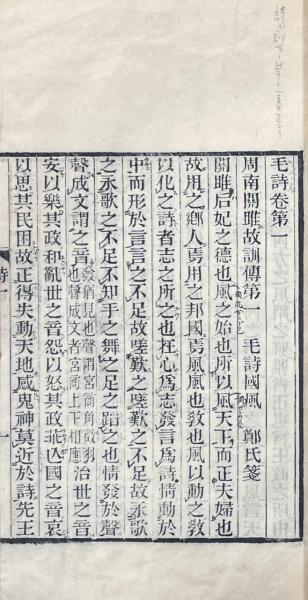 毛詩卷第一
周南關雎故訓傳第一　毛詩國風　鄭氏箋
關雎后妃之德也風之始也所以風天下而正夫婦也
故用之鄉人焉用之邦國焉風風也教也風以動之教
以化之詩者志之所之也在心為志發言為詩情動於
中而形於言言之不足故嗟歎之嗟歎之不足故永歌
之永歌之不足不知手之舞之足之蹈之也情發於聲
聲成文謂之音發猶見也聲謂宮商角徵羽也聲成文者宮商上下相應治世之音
安以樂其政和亂世之音怨以怒其政乖亡國之音哀
以思其民困故正得失動天地感鬼神莫近於詩先王
詩一
一